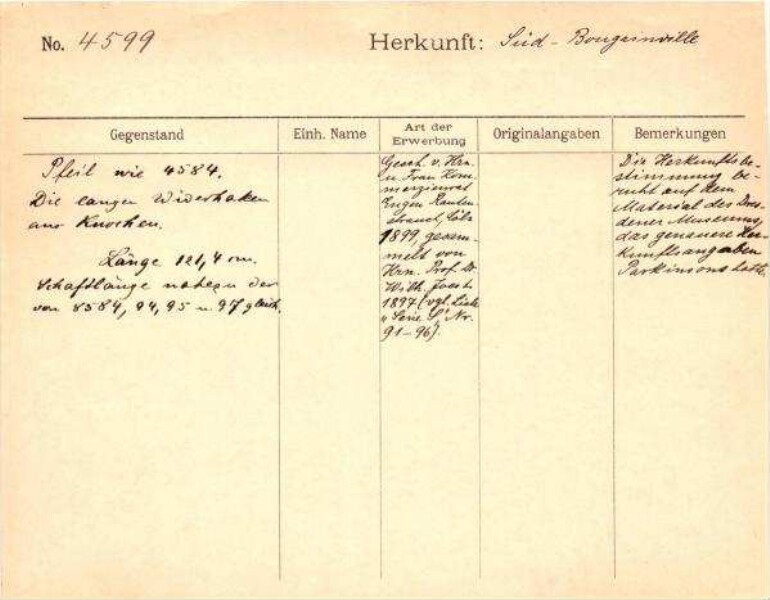 No. 4599
Herkunft: Süd - Bougainville
Gegenstand
Einh. Name
Art der Erwerbung
Originalangaben
Bemerkungen
Pfeil wie 4584.
Die langen Widerhaken
aus Knochen.
Länge 121,4 cm.
Schaftlänge nahezu der
von 8584, 94, 95 u. 97 gleich.
Gesch. v. Hrn.
u. Frau Kom-
merzienrat
Eugen Rauten-
strauch, Cöln
1899, gesam-
melt von
Hrn. Prof. Dr.
Wilh. Joest
1897 (vgl. Liste
"Serie S", Nr.
91-96).
Die Herkunftsbe-
stimmung be-
ruht auf dem
Material des Dres-
dener Museums,
das genauere Her-
kunftsangaben
Parkinsons hatte.